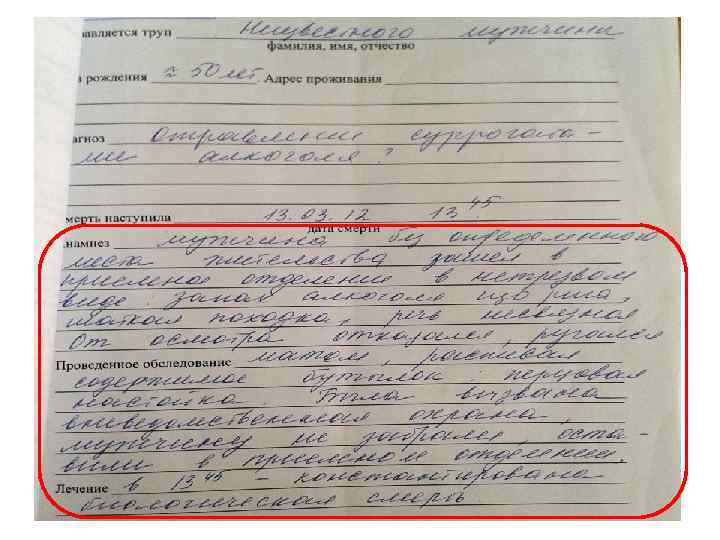 авляется труп Неизвестного мужчины
фамилия, имя, отчество
а рождения ≈ 50 лет. Адрес проживания
агноз отравление суррогата-
ми алкоголя?
мерть наступила 13.03.12 13 45
дата смерти
намнез мужчина без определенного
места жительства зашел в
приемное отделение в нетрезвом
виде: запах алкоголя изо рта,
шаткая походка, речь несвязная
От осмотра отказался, ругался
Проведенное обследование матом, распивал
содержимое бутылок: перцовая
настойка. Была вызвана
вневедомственная охрана,
мужчину не забрали, оста-
вили в приемном отделении.
Лечение в 13 45 - констатирована
биологическая смерть.